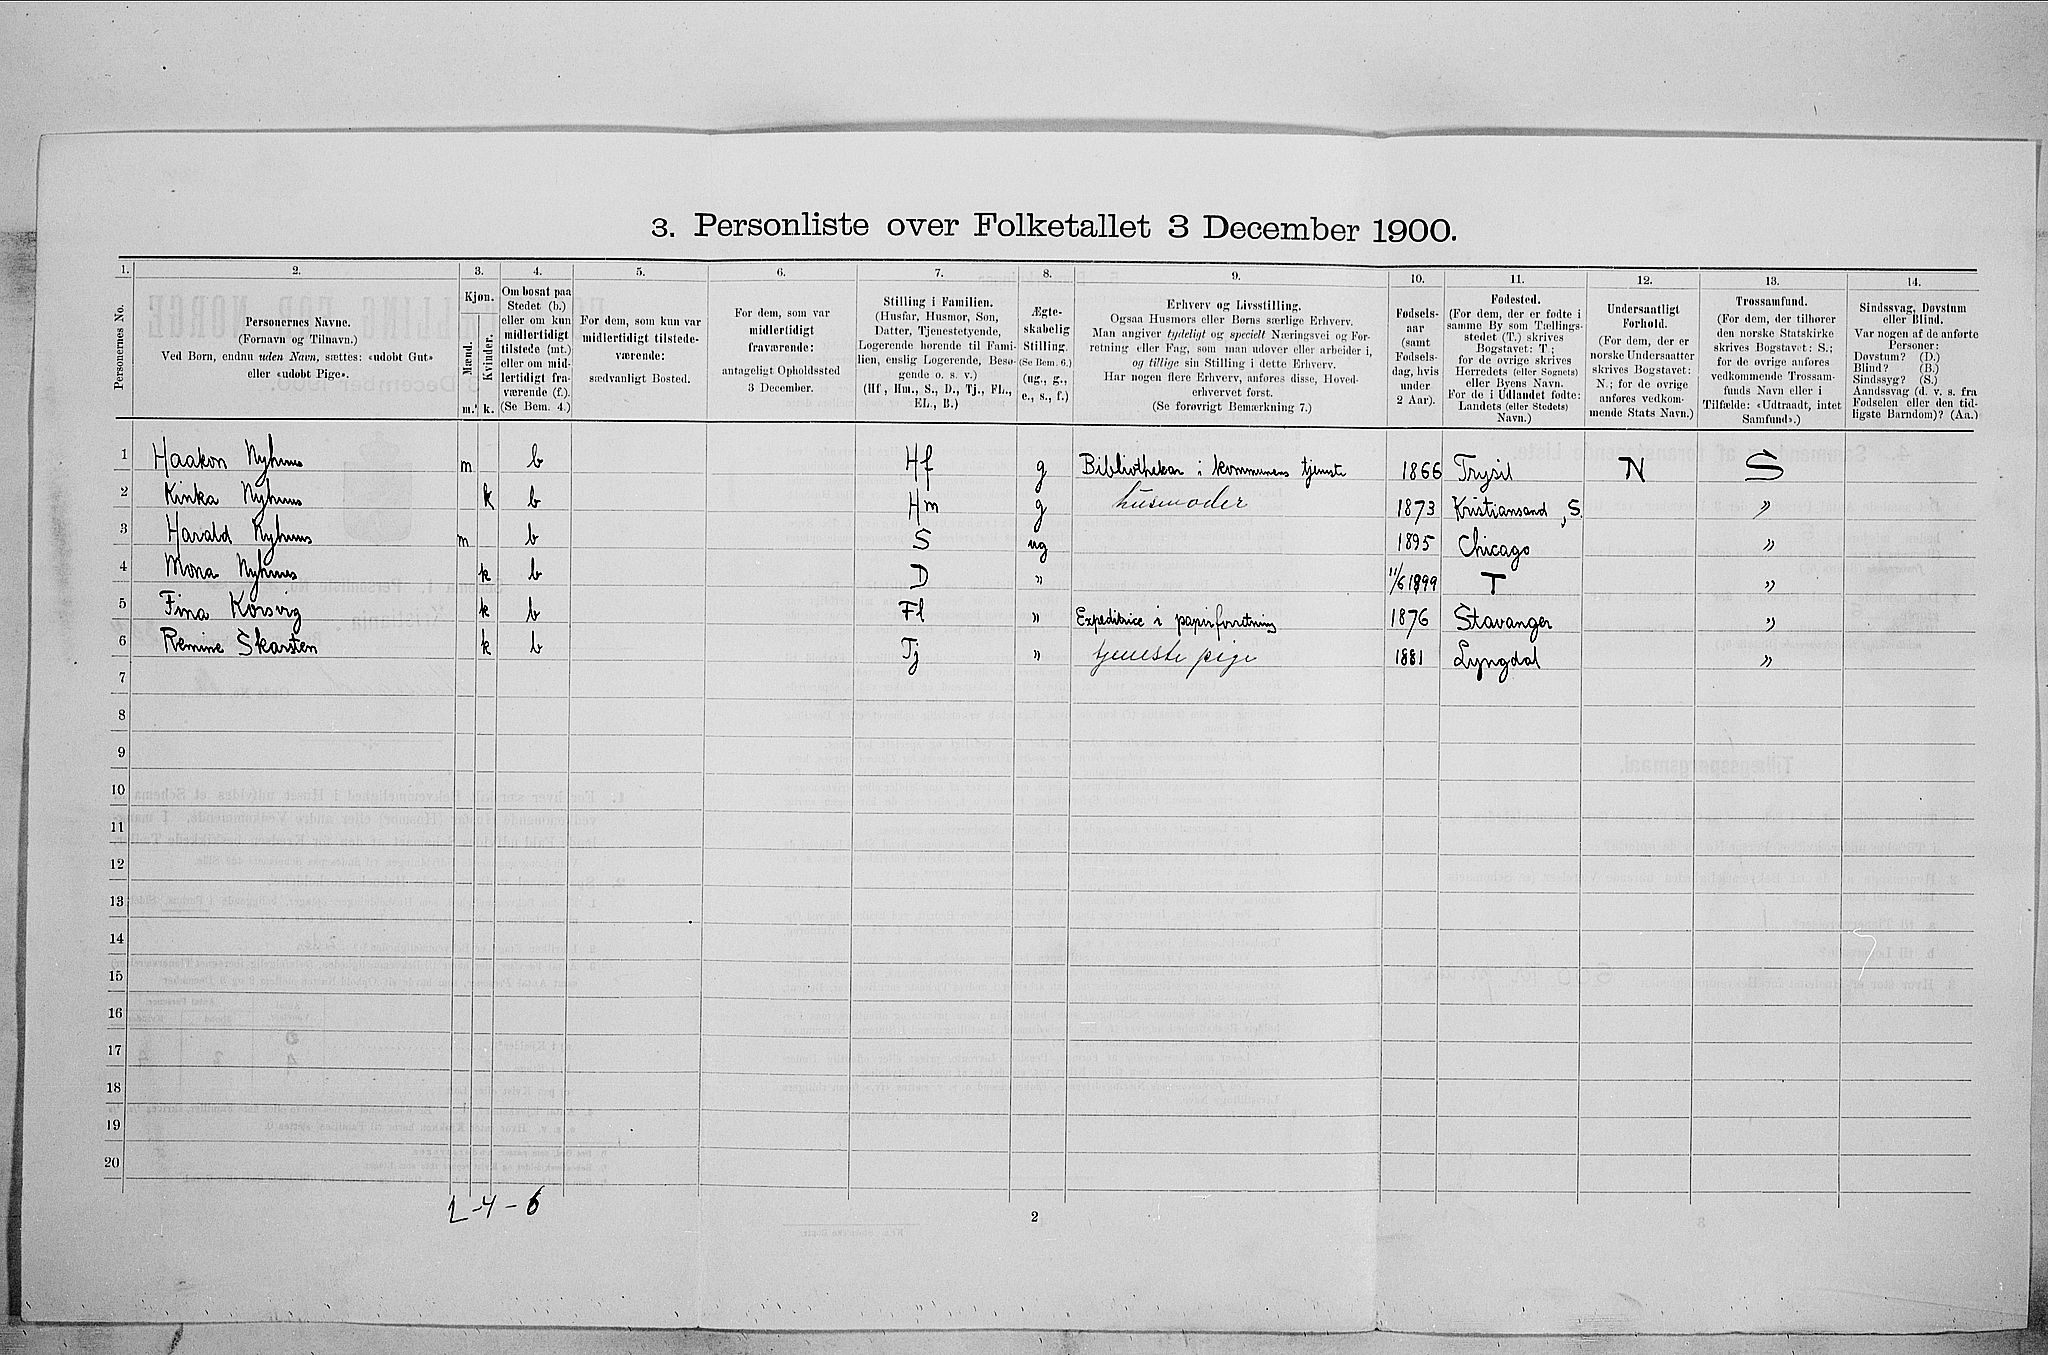 3. Personliste over Folketallet 3 December 1900.
1. 2. 3. 4. 5. 6. 7. 8. 9. 10. 11. 12. 13. 14.
Personernes No.
Personernes Navne.
(Fornavn og Tilnavn.)
Ved Børn, endnu uden Navn, sættes: «udøbt Gut»
eller «udøbt Pige».
Kjøn.
Mænd.
Kvinder.
m. k.
Om bosat paa
Stedet (b.)
eller om kun
midlertidigt
tilstede (mt.)
eller om mid-
lertidigt fra-
værende (f.).
(Se Bem. 4.)
For dem, som kun var
midlertidigt tilstede-
værende:
sædvanligt Bosted.
For dem, som var
midlertidigt
fraværende:
antageligt Opholdssted
3 December.
Stilling i Familien.
(Husfar, Husmor, Søn,
Datter, Tjenestetyende,
Logerende hørende til Fami-
lien, enslig Logerende, Besø-
gende o. s. v.)
(Hf., Hm., S., D., Tj., FL.,
EL., B.)
Ægte-
skabelig
Stilling.
(Se Bem. 6.)
(ug., g.,
e., s., f.)
Erhverv og Livsstilling.
Ogsaa Husmors eller Børns særlige Erhverv.
Man angiver tydeligt og specielt Næringsvei og For-
retning eller Fag, som man udøver eller arbeider i,
og tillige sin Stilling i dette Erhverv.
Har nogen flere Erhverv, anføres disse, Hoved-
erhvervet først.
(Se forøvrigt Bemærkning 7.)
Fødsels-
aar
(samt
Fødsels-
dag, hvis
under
2 Aar).
Fødested.
(For dem, der er fødte i
samme By som Tællings-
stedet (T.) skrives
Bogstavet: T;
for de øvrige skrives
Herredets (eller Sognets)
eller Byens Navn.
For de i Udlandet fødte:
Landets (eller Stedets)
Navn.)
Undersaatligt
Forhold.
(For dem, der er
norske Undersaatter
skrives Bogstavet:
N.; for de øvrige
anføres vedkom-
mende Stats Navn.)
Trossamfund.
(For dem, der tilhører
den norske Statskirke
skrives Bogstavet: S.;
for de øvrige anføres
vedkommende Trossam-
funds Navn eller i
Tilfælde: «Udtraadt, intet
Samfund».)
Sindssvag, Døvstum
eller Blind.
Var nogen af de anførte
Personer:
Døvstum? (D.)
Blind? (B.)
Sindssyg? (S.)
Aandssvag (d. v. s. fra
Fødselen eller den tid-
ligste Barndom)? (Aa.)
1 Haakon Nyhuus m b Hf g Bibliothekar i kommunens tjeneste 1866 Trysil N S
2 Kinka Nyhuus k b Hm g husmoder 1873 Kristiansand, S. "
3 Harald Nyhuus m b S ug 1895 Chicago "
4 Mona Nyhuus k b D " 11/6 1899 T "
5 Fina Korsvig k b Fl " Expeditrice i papirforretning 1876 Stavanger "
6 Remine Skarsten k b Tj " tjeneste pige 1881 Lyngdal "
7
8
9
10
11
12
13
14
15
16
17
18
19
20
2-4-6
2